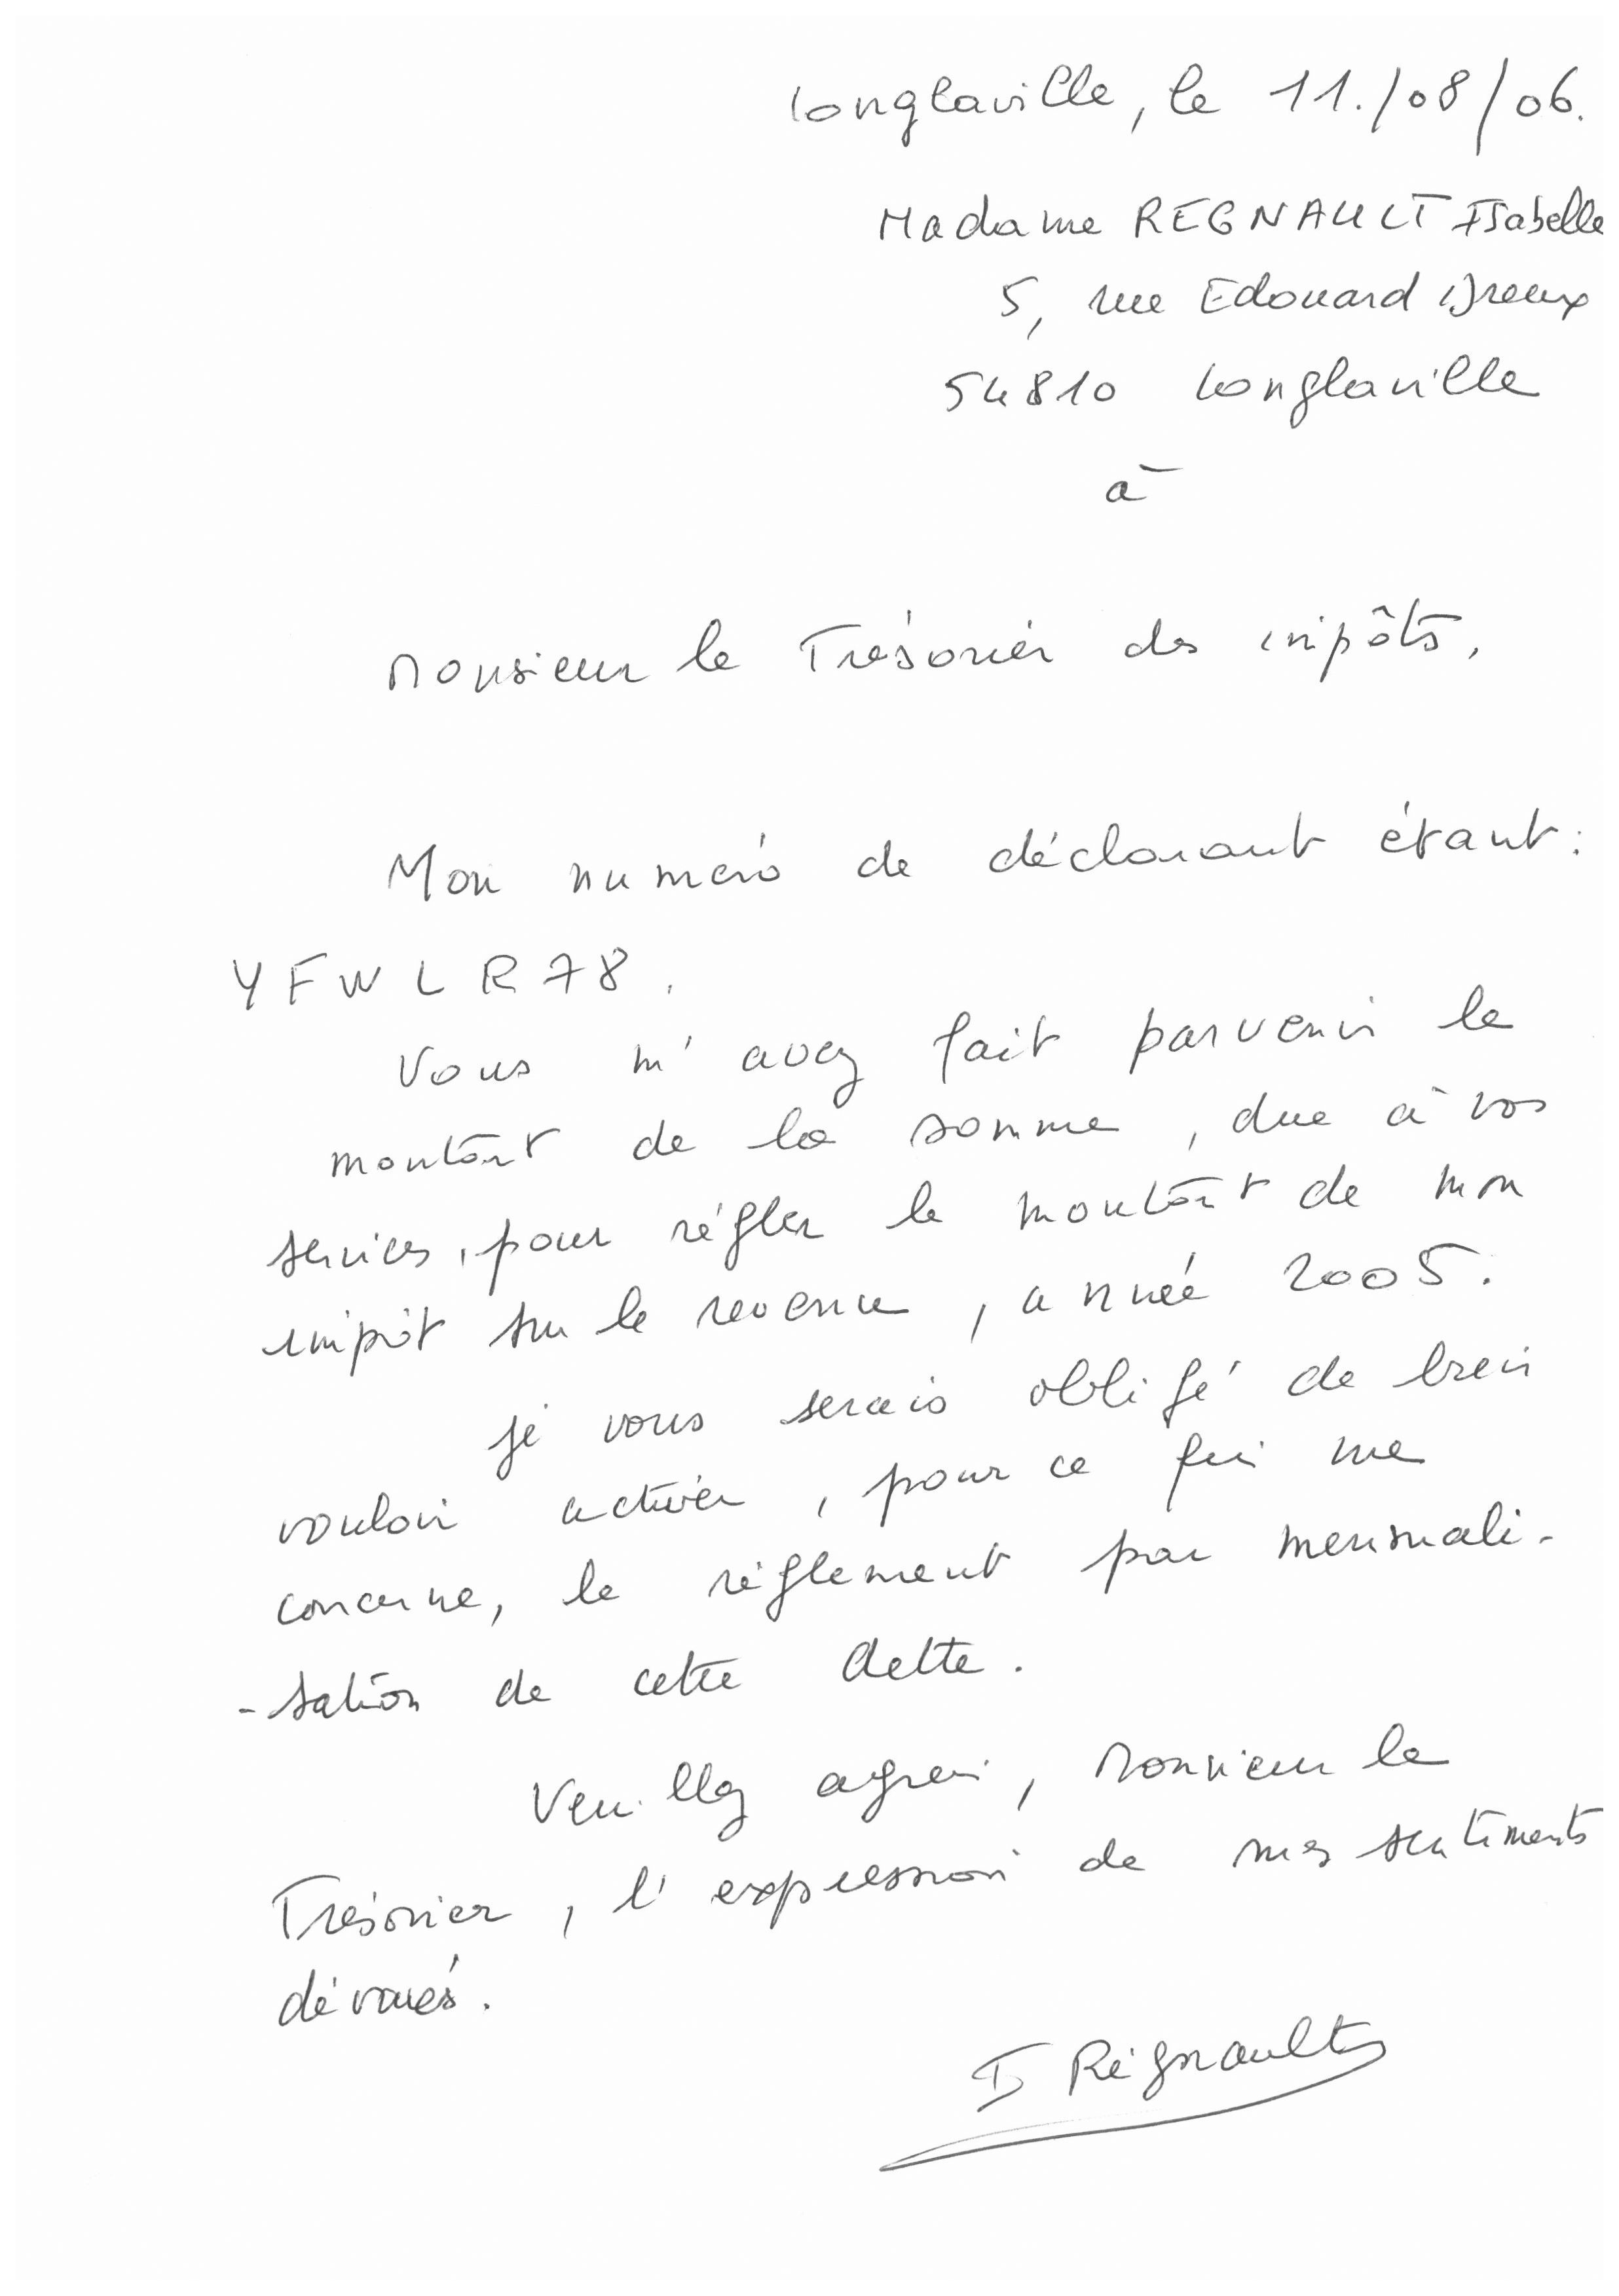 Longlaville, le 11./08/06.
Madame REGNAULT Isabelle
5, rue Edouard Dreux
54810 Longlaville
à
Monsieur le Trésorier des impôts,
Mon numéro de déclarant étant :
YFWLR78.
Vous m'avez fait parvenir le
montant de la somme, due à vos
services, pour régler le montant de mon
impôt sur le revenu, année 2005.
Je vous serais obligé de bien
vouloir activer, pour ce qui me
concerne, le réglement par mensuali-
-sation de cette dette.
Veuillez agréer, Monsieur le
Trésorier, l'expression de mes sentiments
dévoués.
I Régnault